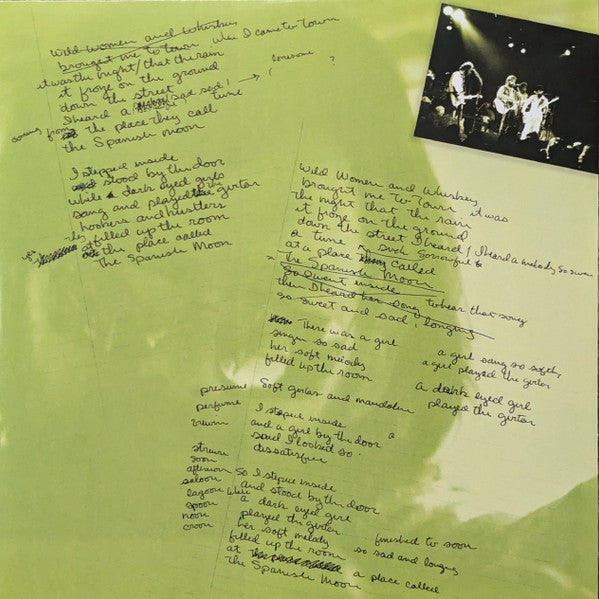 Wild Women and Whiskey
brought me to town when I came to town
it was the night / that the rain
it froze on the ground
down the street
I heard a sad sad / tune
lonesome ?
coming from the place they call
the Spanish moon
I stepped inside
stood by the door
while a dark eyed girls
sang and played the girtar
hookers and hustlers
they filled up the room
the place called
The Spanish Moon
Wild Women and Whiskey
brought me to town it was
the night that the rain
it froze on the ground
down the street I heard / I heard a melody so
a tune such sorrowful
at a place called
The Spanish Moon
So I went inside to hear that song
then I heard her song
so sweet and sad, longing
There was a girl
singin so sad
her soft melody
filled up the room
a girl sang so softly
a girl played the girtar
a dark eyed girl
played the girtar
presume
perfume
Soft girtar and mandolin
I stepped inside
and a girl by the door a
said I looked so
dissatisfied
soon
afternoon
saloon
lagoon
spoon
noon
croon
So I stepped inside
and stood by the door
while
a dark eyed girl
played the girtar
her soft melody finished to soon
filled up the room so sad and longing
at a place called
The Spanish Moon